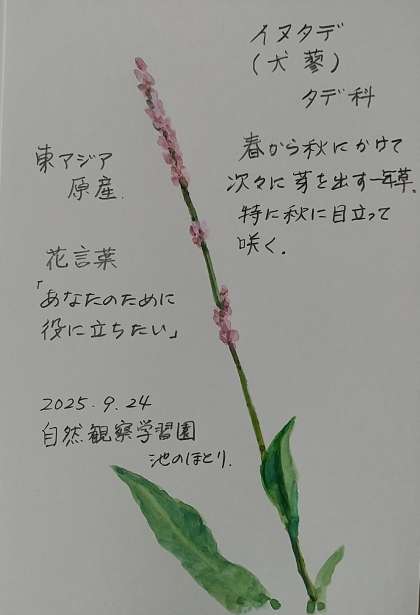 イヌタデ
(犬蓼)
タデ科
東アジア
原産.
春から秋にかけて
次々に芽を出す一年草.
特に秋に目立って
咲く.
花言葉
「あなたのために
役に立ちたい」
2025.9.24
自然観察学習園
池のほとり.